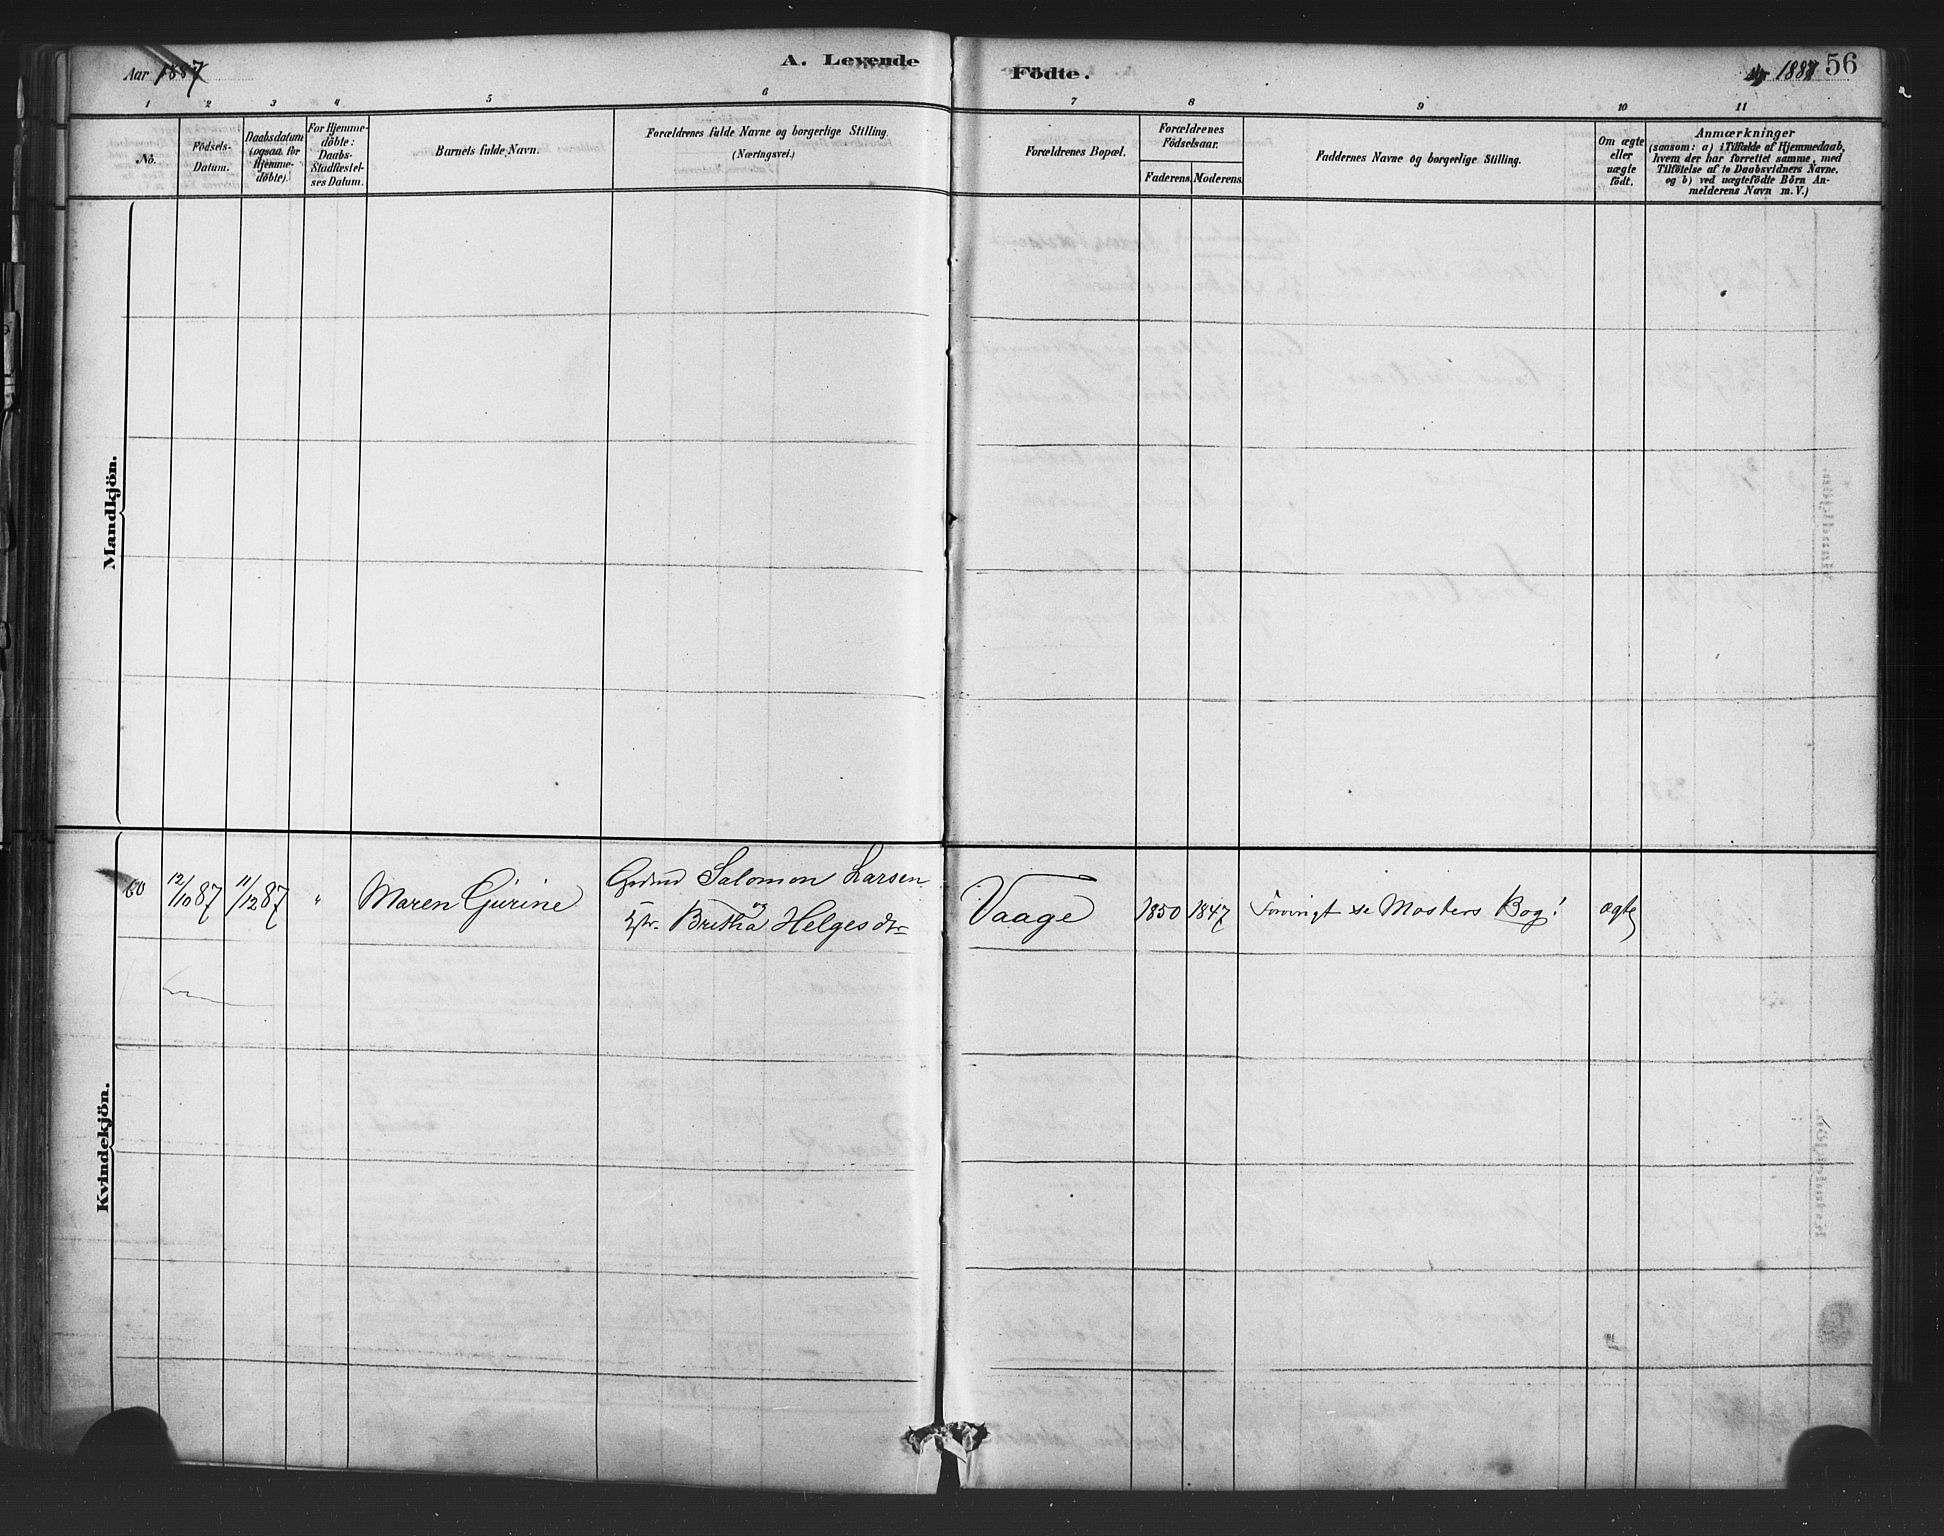 Aar 1887
A. Levende
Födte.
Aar 1887
56
1
2
3
4
5
6
7
8
9
10
11
No.
Födsels-
Datum.
Daabsdatum
(ogsaa for
Hjemme-
döbte).
For Hjemme-
döbte:
Daabs-
Stadfæstel-
ses Datum.
Barnets fulde Navn.
Forældrenes fulde Navne og borgerlige Stilling.
(Næringsvei.)
Forældrenes Bopæl.
Forældrenes
Födselsaar.
Faderens.
Moderens.
Faddernes Navne og borgerlige Stilling.
Om ægte
eller
uægte
födt.
Anmærkninger
(saasom: a) i Tilfælde af Hjemmedaab,
hvem der har forrettet samme, med
Tilföielse af to Daabsvidners Navne,
og b) ved uægtefödte Börn An-
melderens Navn m.V.)
Mandkjön.
Kvindekjön.
60
12/10 87
11/12 87
"
Maren Gurine
Grdmd Salomon Larsen
og
Britha Helgesdtr
Vaage
1850
1847
Forövrigt se Mosters Bog!
ægte